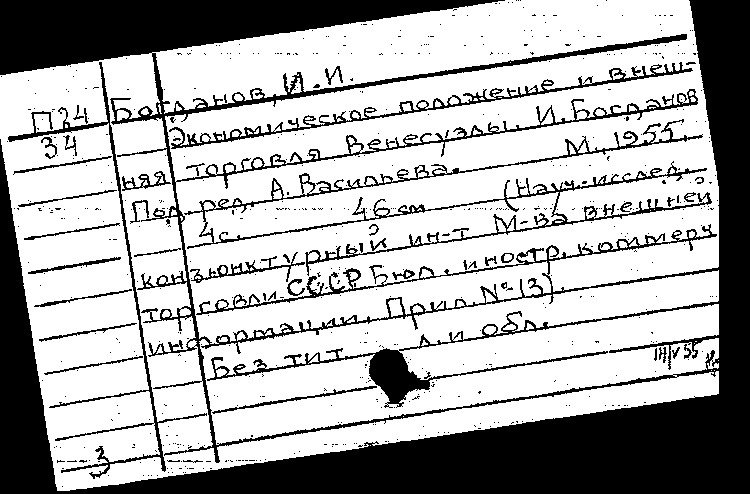 П24 Богданов, И.И.
34 Экономическое положение и внеш-
няя торговля Венесуэлы. И. Богданов
Под ред. А. Васильева. М., 1955.
4с. 46 см (Науч.-исслед.
конъюнктурный ин-т М-ва внешней
торговли СССР Бюл. иностр. коммерч
информации. Прил. № 13).
Без тит л. и обл.
55
3